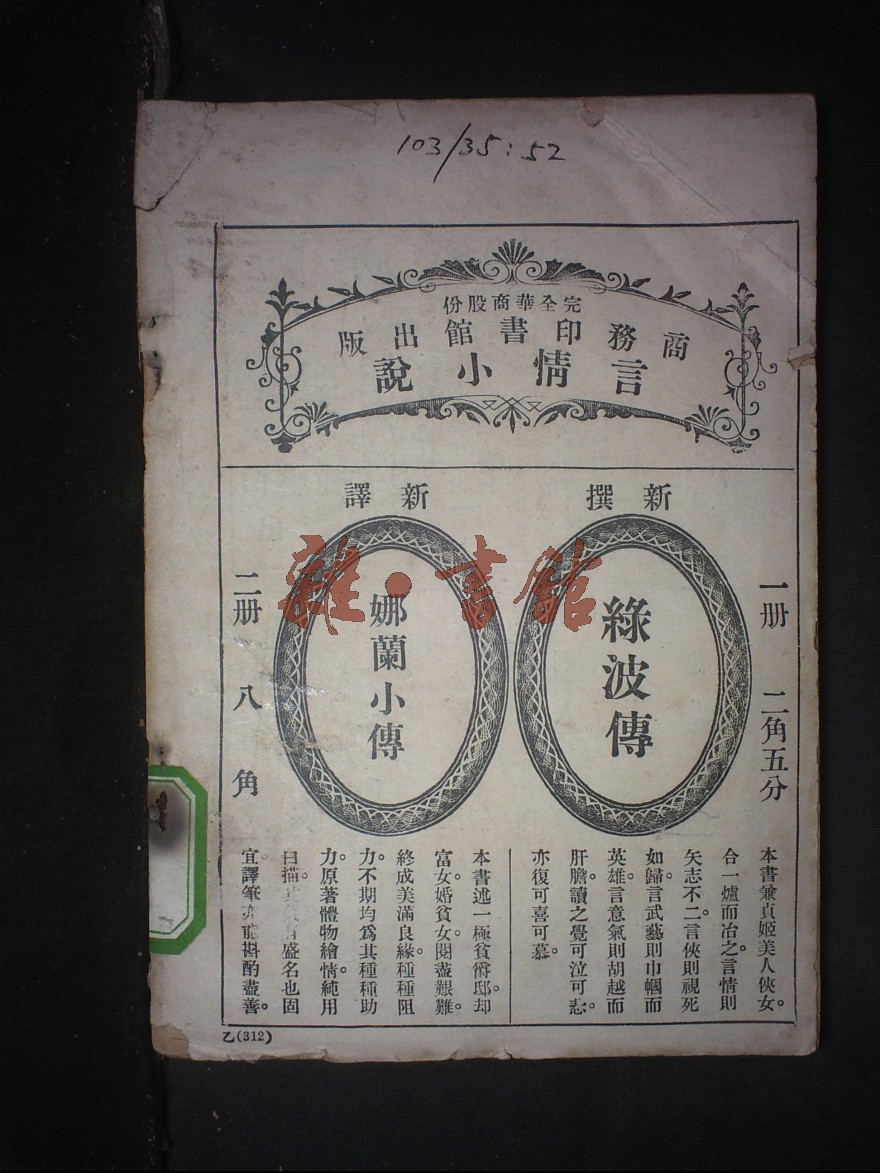 103/35:52
完全華商股份
商務印書館出版
言情小說
新撰
綠波傳
一册 二角五分
本書兼貞姬美人俠女。
合一爐而冶之。言情則
矢志不二。言俠則視死
如歸。言武藝則巾幗而
英雄。言意氣則胡越而
肝膽。讀之覺可泣可悲。
亦復可喜可慕。
新譯
娜蘭小傳
二册 八角
本書述一極貧爵邸。却
富女婚貧女。閱盡艱難。
終成美滿良緣。種種阻
力。不期均為其種種助
力。原著體物繪情。純用
白描。盛名也固
宜。譯筆亦能斟酌盡善。
乙(312)
雜·書館